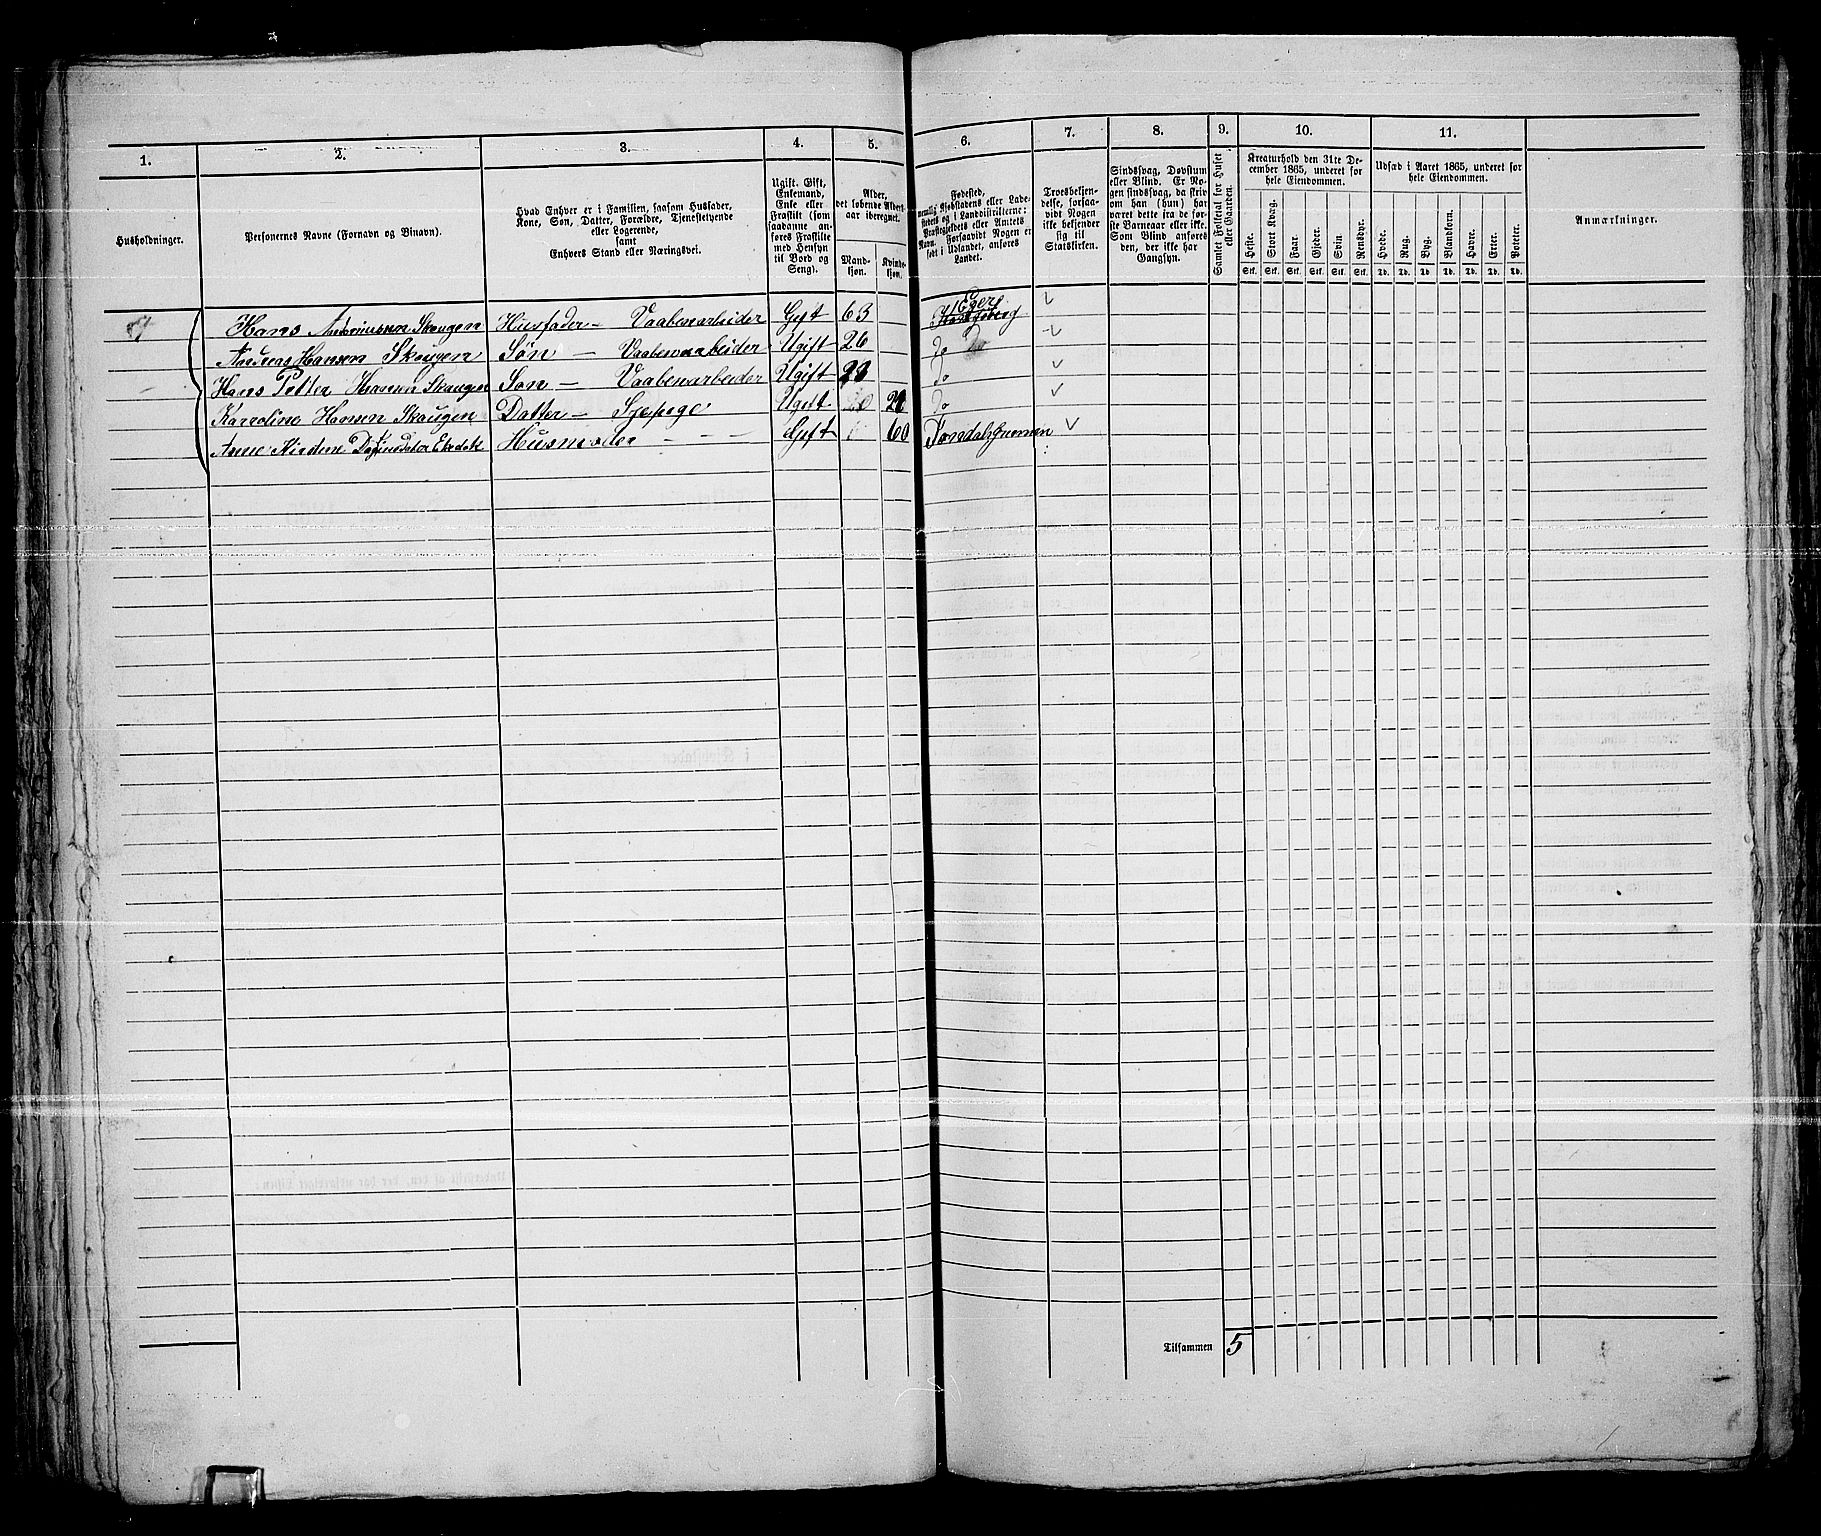 1. 2. 3. 4. 5. 6. 7. 8. 9. 10. 11.
Husholdninger.
Personernes Navne (Fornavn og Binavn).
Hvad Enhver er i Familien, saasom Husfader,
Kone, Søn, Datter, Forældre, Tjenestetyende
eller Logerende,
samt
Enhvers Stand eller Næringsvei.
Ugift, Gift,
Enkemand,
Enke eller
Fraskilt (som
saadanne an-
føres Fraskilte
med Hensyn
til Bord og
Seng).
Alder,
det løbende Alders-
aar iberegnet.
Mand-
kjøn.
Kvinde-
kjøn.
Fødested,
nemlig Kjøbstadens eller Lade-
stedets og i Landdistrikterne:
Præstegjeldets eller Amtets
Navn. Forsaavidt Nogen er
født i Udlandet, anføres
Landet.
Troesbekjen-
delse, forsaa-
vidt Nogen
ikke bekjender
sig til
Statskirken.
Sindssvag, Døvstum
eller Blind. Er No-
gen sindssvag, da skriv
om han (hun) har
været dette fra de før-
ste Barneaar eller ikke.
Som Blind anføres
den, der ikke har
Gangsyn.
Samlet Folketal for Huset
eller Gaarden.
Kreaturhold den 31te De-
cember 1865, underet for
hele Eiendommen.
Heste. Stort Kvæg. Faar. Gjeder. Svin. Rensdyr.
Stk. Stk. Stk. Stk. Stk. Stk.
Udsæd i Aaret 1865, underet for
hele Eiendommen.
Hvede. Rug. Byg. Blandkorn. Havre. Erter. Poteter.
Td. Td. Td. Td. Td. Td. Td.
Anmærkninger.
Hans Skaugen Husfader – Vaabenarbeider Gift 63 Eger Kongsberg
Andreas Hansen Skaugen Søn – Vaabenarbeider Ugift 26 Do
Hans Petter Hansen Skaugen Søn – Vaabenarbeider Ugift 23 Do
Karoline Hansen Skaugen Datter – Sypige Ugift Do
Anne Husmoder - - - Gift 60
Tilsammen 5